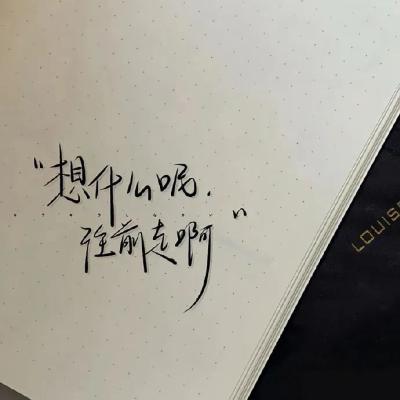 “想什么呢.
往前走啊”
LOUISE